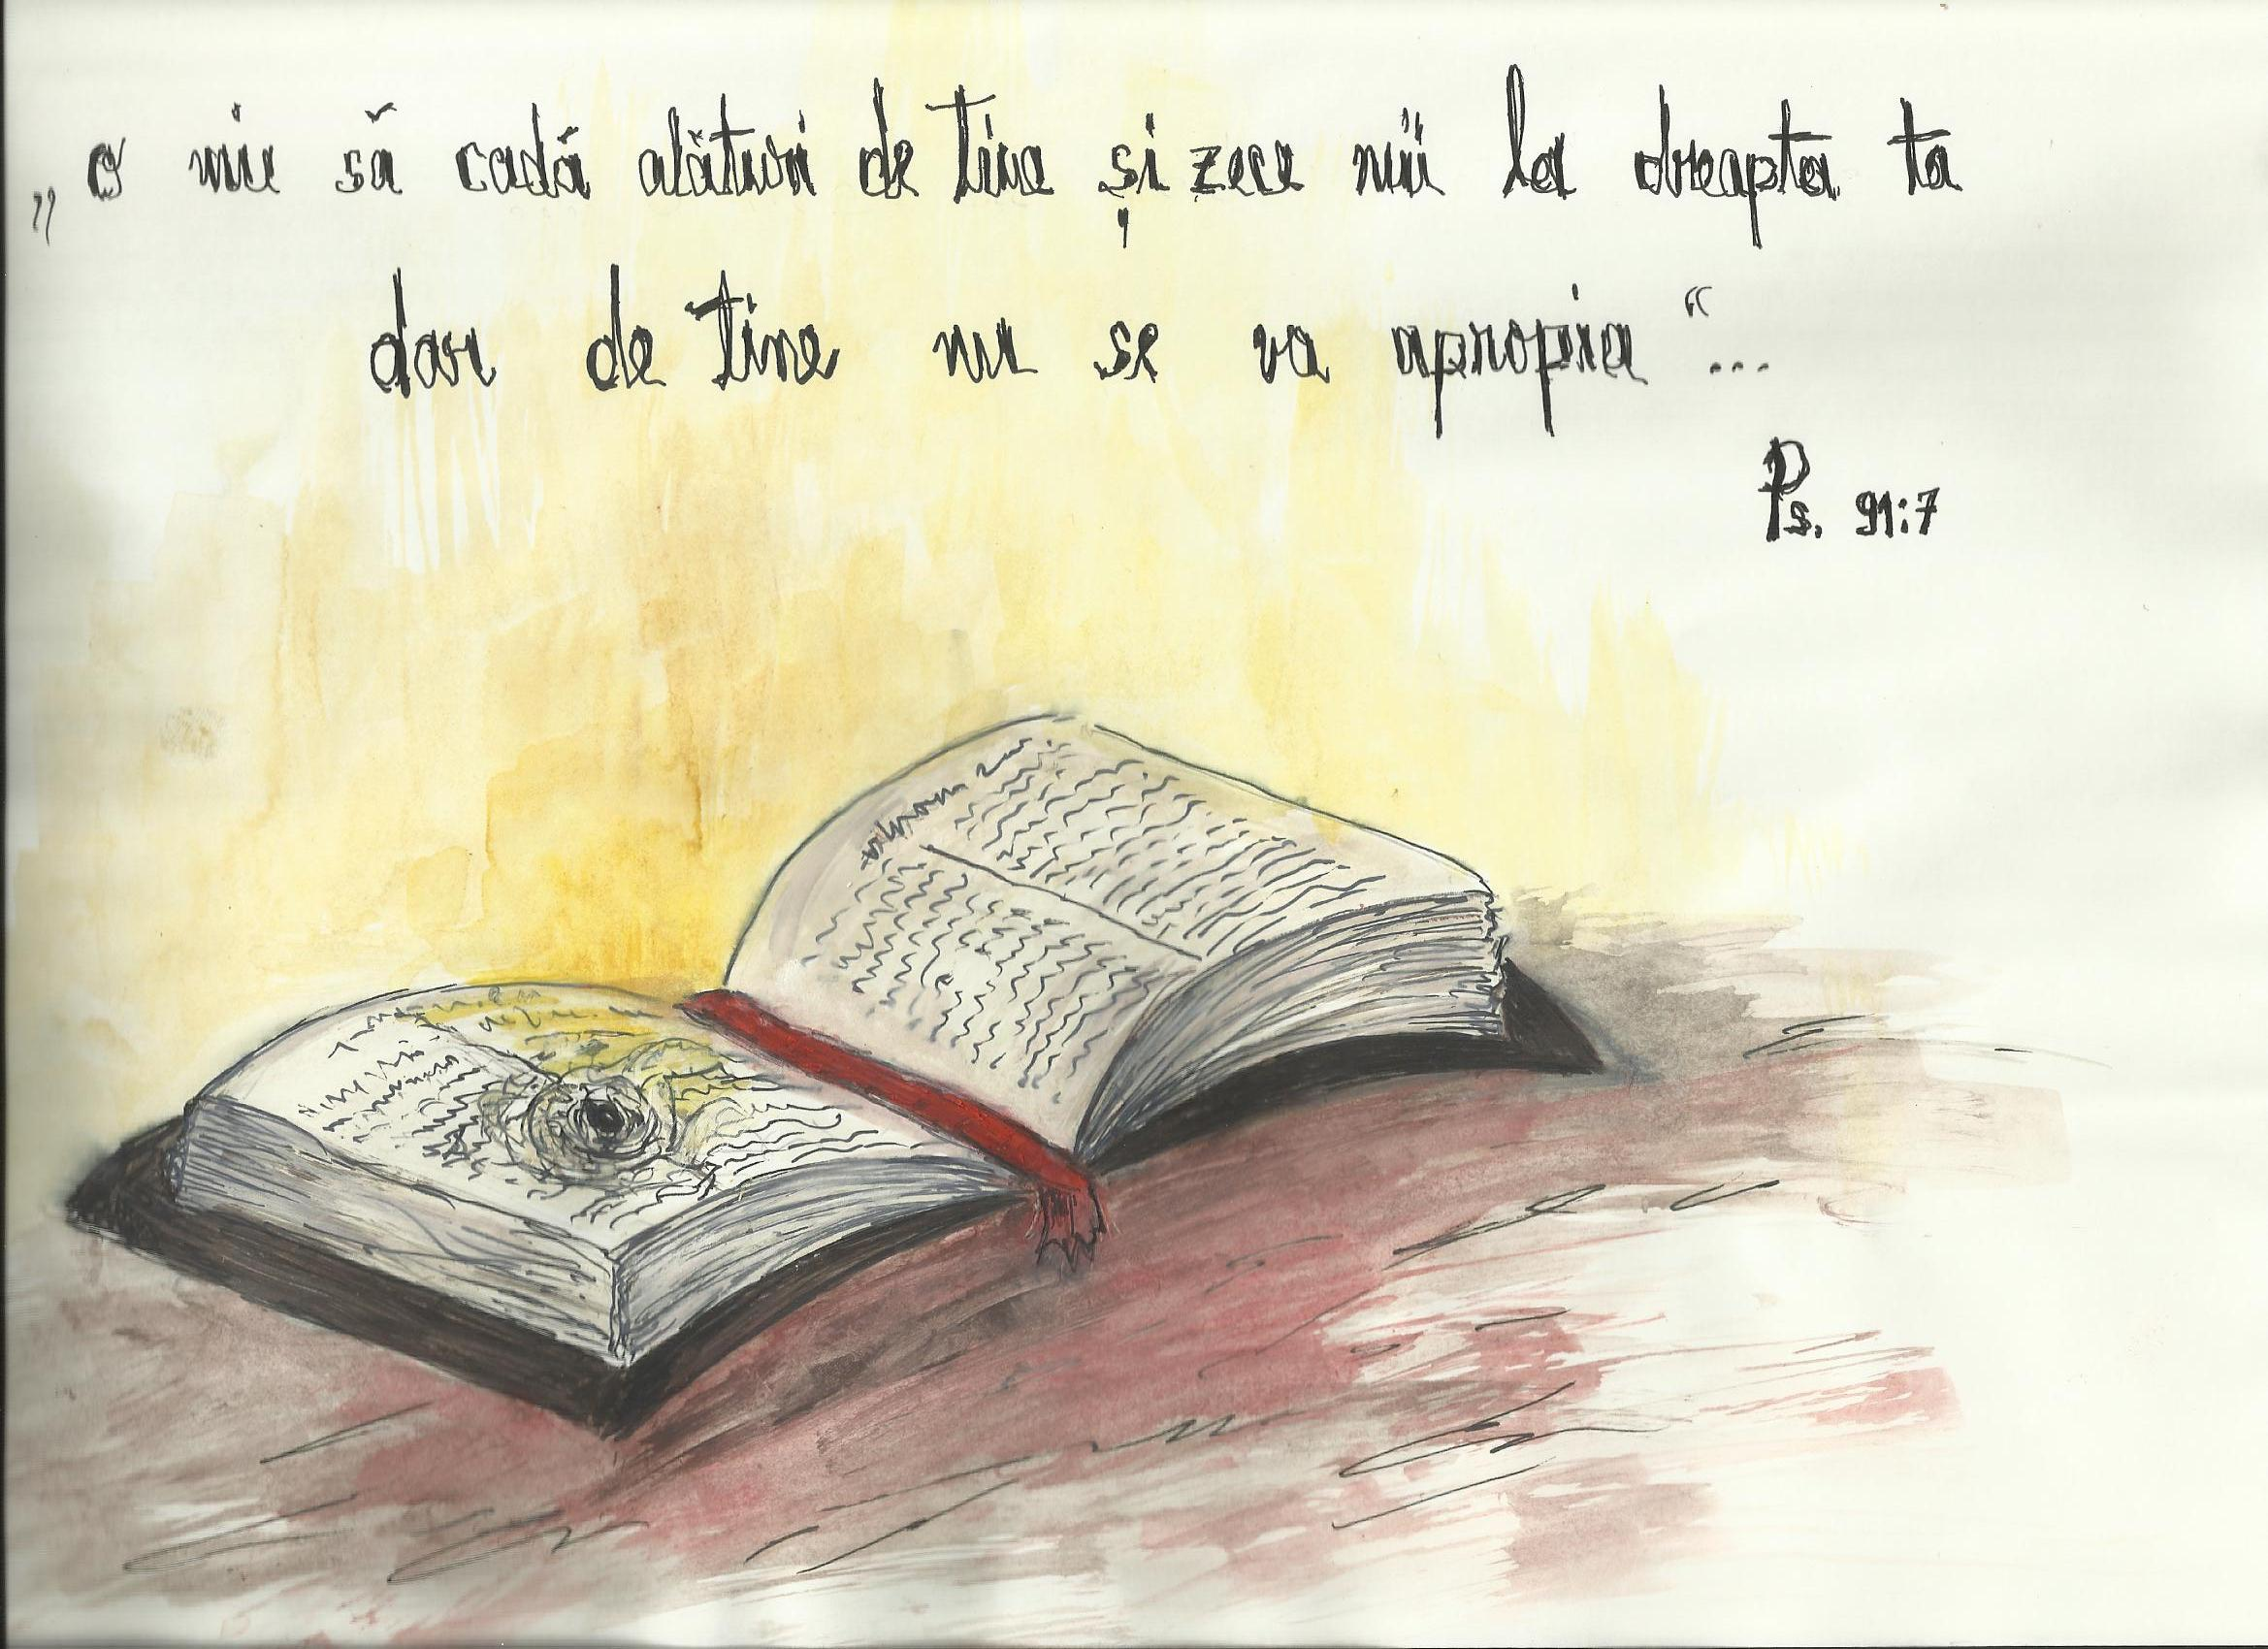 „o mie să cadă alături de tine și zece mii la dreapta ta
dar de tine nu se va apropia“...
Ps. 91:7